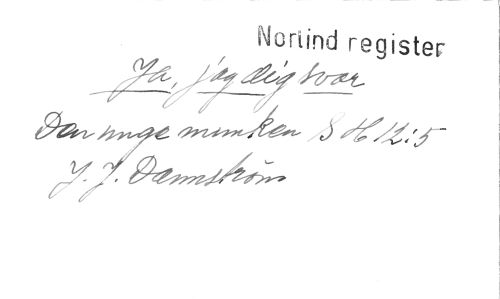 Norlind register
Ja, jag dig svor
Den unge munken S H 12:5
J. J. Dannström